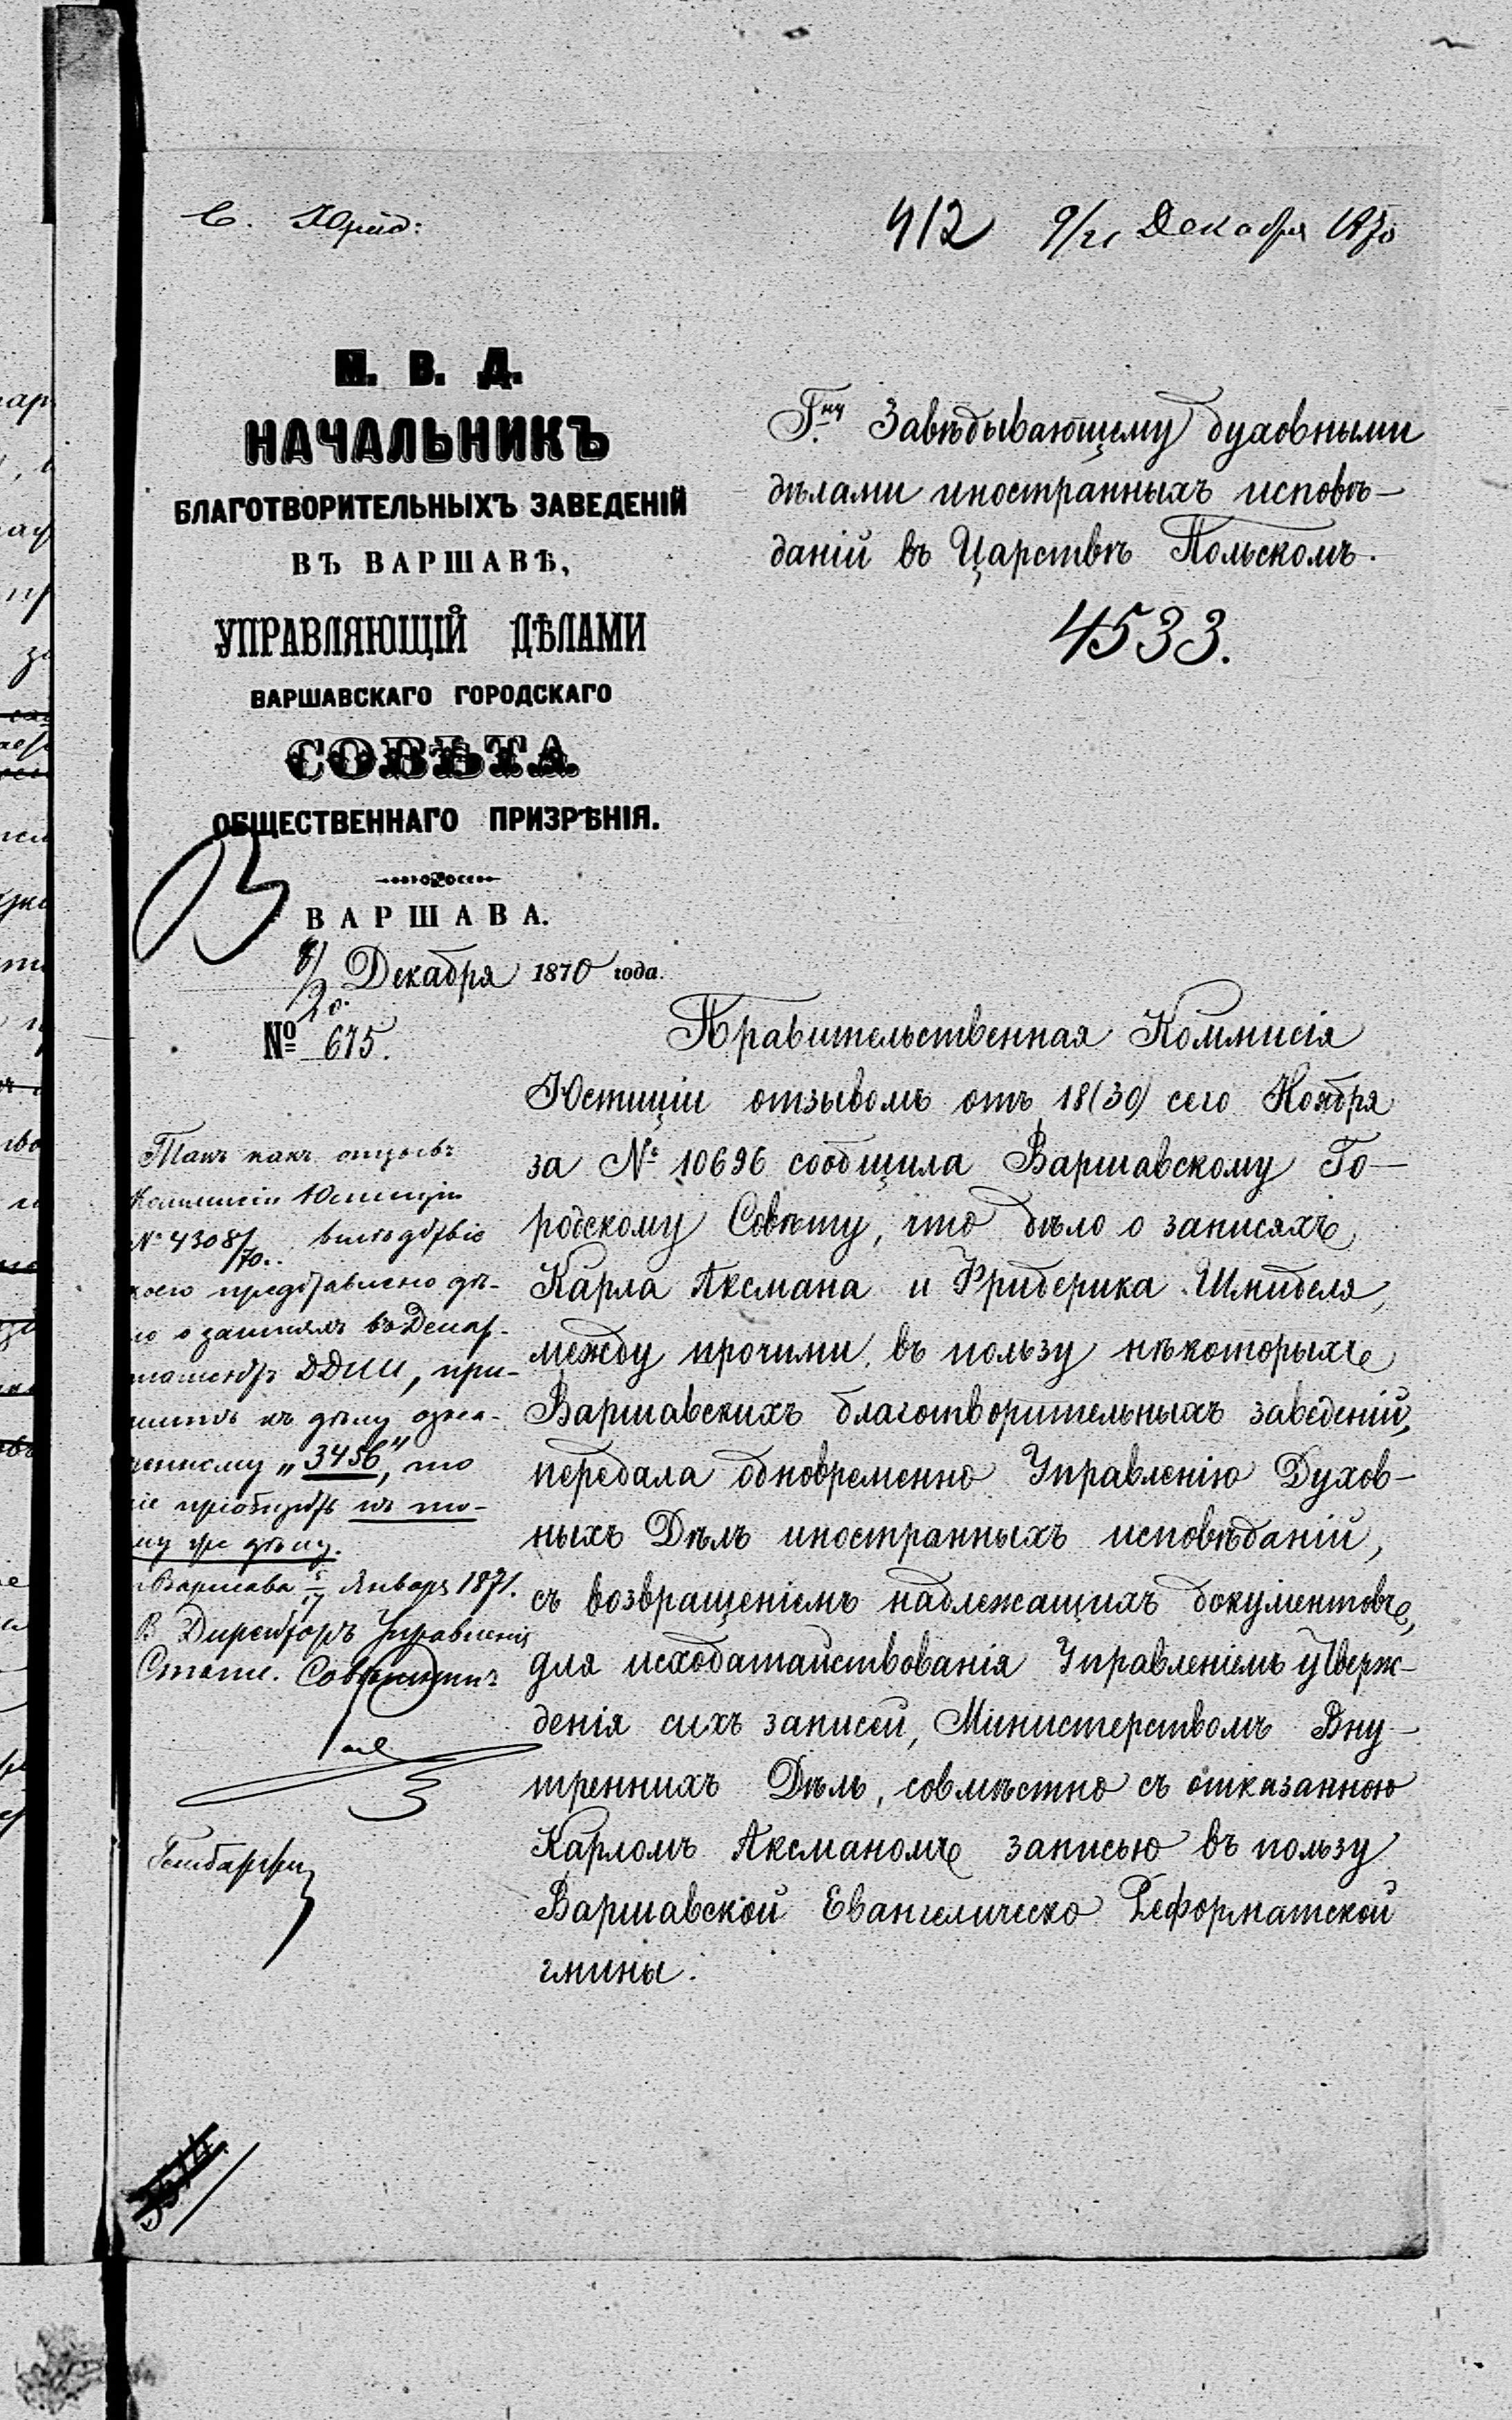 С. Юрид:
412 9/21 Декабря 1870
М. В. Д.
НАЧАЛЬНИКЪ
БЛАГОТВОРИТЕЛЬНЫХЪ ЗАВЕДЕНІЙ
ВЪ ВАРШАВѢ,
УПРАВЛЯЮЩІЙ ДѢЛАМИ
ВАРШАВСКАГО ГОРОДСКАГО
СОВѢТА
ОБЩЕСТВЕННАГО ПРИЗРѢНІЯ.
ВАРШАВА.
8/20 Декабря 1870 года.
№ 675.
Г.ну Завѣдывающему духовными
дѣлами иностранныхъ исповѣ-
даній въ Царствѣ Польскомъ.
4533.
Правительственная Коммисія
Юстиціи отзывомъ отъ 18(30) сего Ноября
за № 10696 сообщила Варшавскому Го-
родскому Совѣту, что дѣло о записяхъ
Карла Аксмана и Фридерика Шмиделя,
между прочими, въ пользу нѣкоторыхъ
Варшавскихъ благотворительныхъ заведеній,
передала одновременно Управленію Духов-
ныхъ Дѣлъ иностранныхъ исповѣданій,
съ возвращеніемъ надлежащихъ документовъ,
для исходатайствованія Управленіемъ утверж-
денія сихъ записей, Министерствомъ Вну-
треннихъ Дѣлъ, совмѣстно съ отказанною
Карломъ Аксманомъ записью въ пользу
Варшавской Евангелическо Реформатской
гмины.
Такъ какъ отзывъ
Коммисіи Юстиціи
№ 4308/70. вслѣдствіе
коего представлено дѣ-
ло о записяхъ въ Депар-
таментъ ДДИИ, при-
къ дѣлу озна-
ченному „3456", то
сіе пріобщить къ то-
му же дѣлу.
Варшава 5/17 Января 1871.
В Директоръ Управленія
Статс. Совѣтникъ